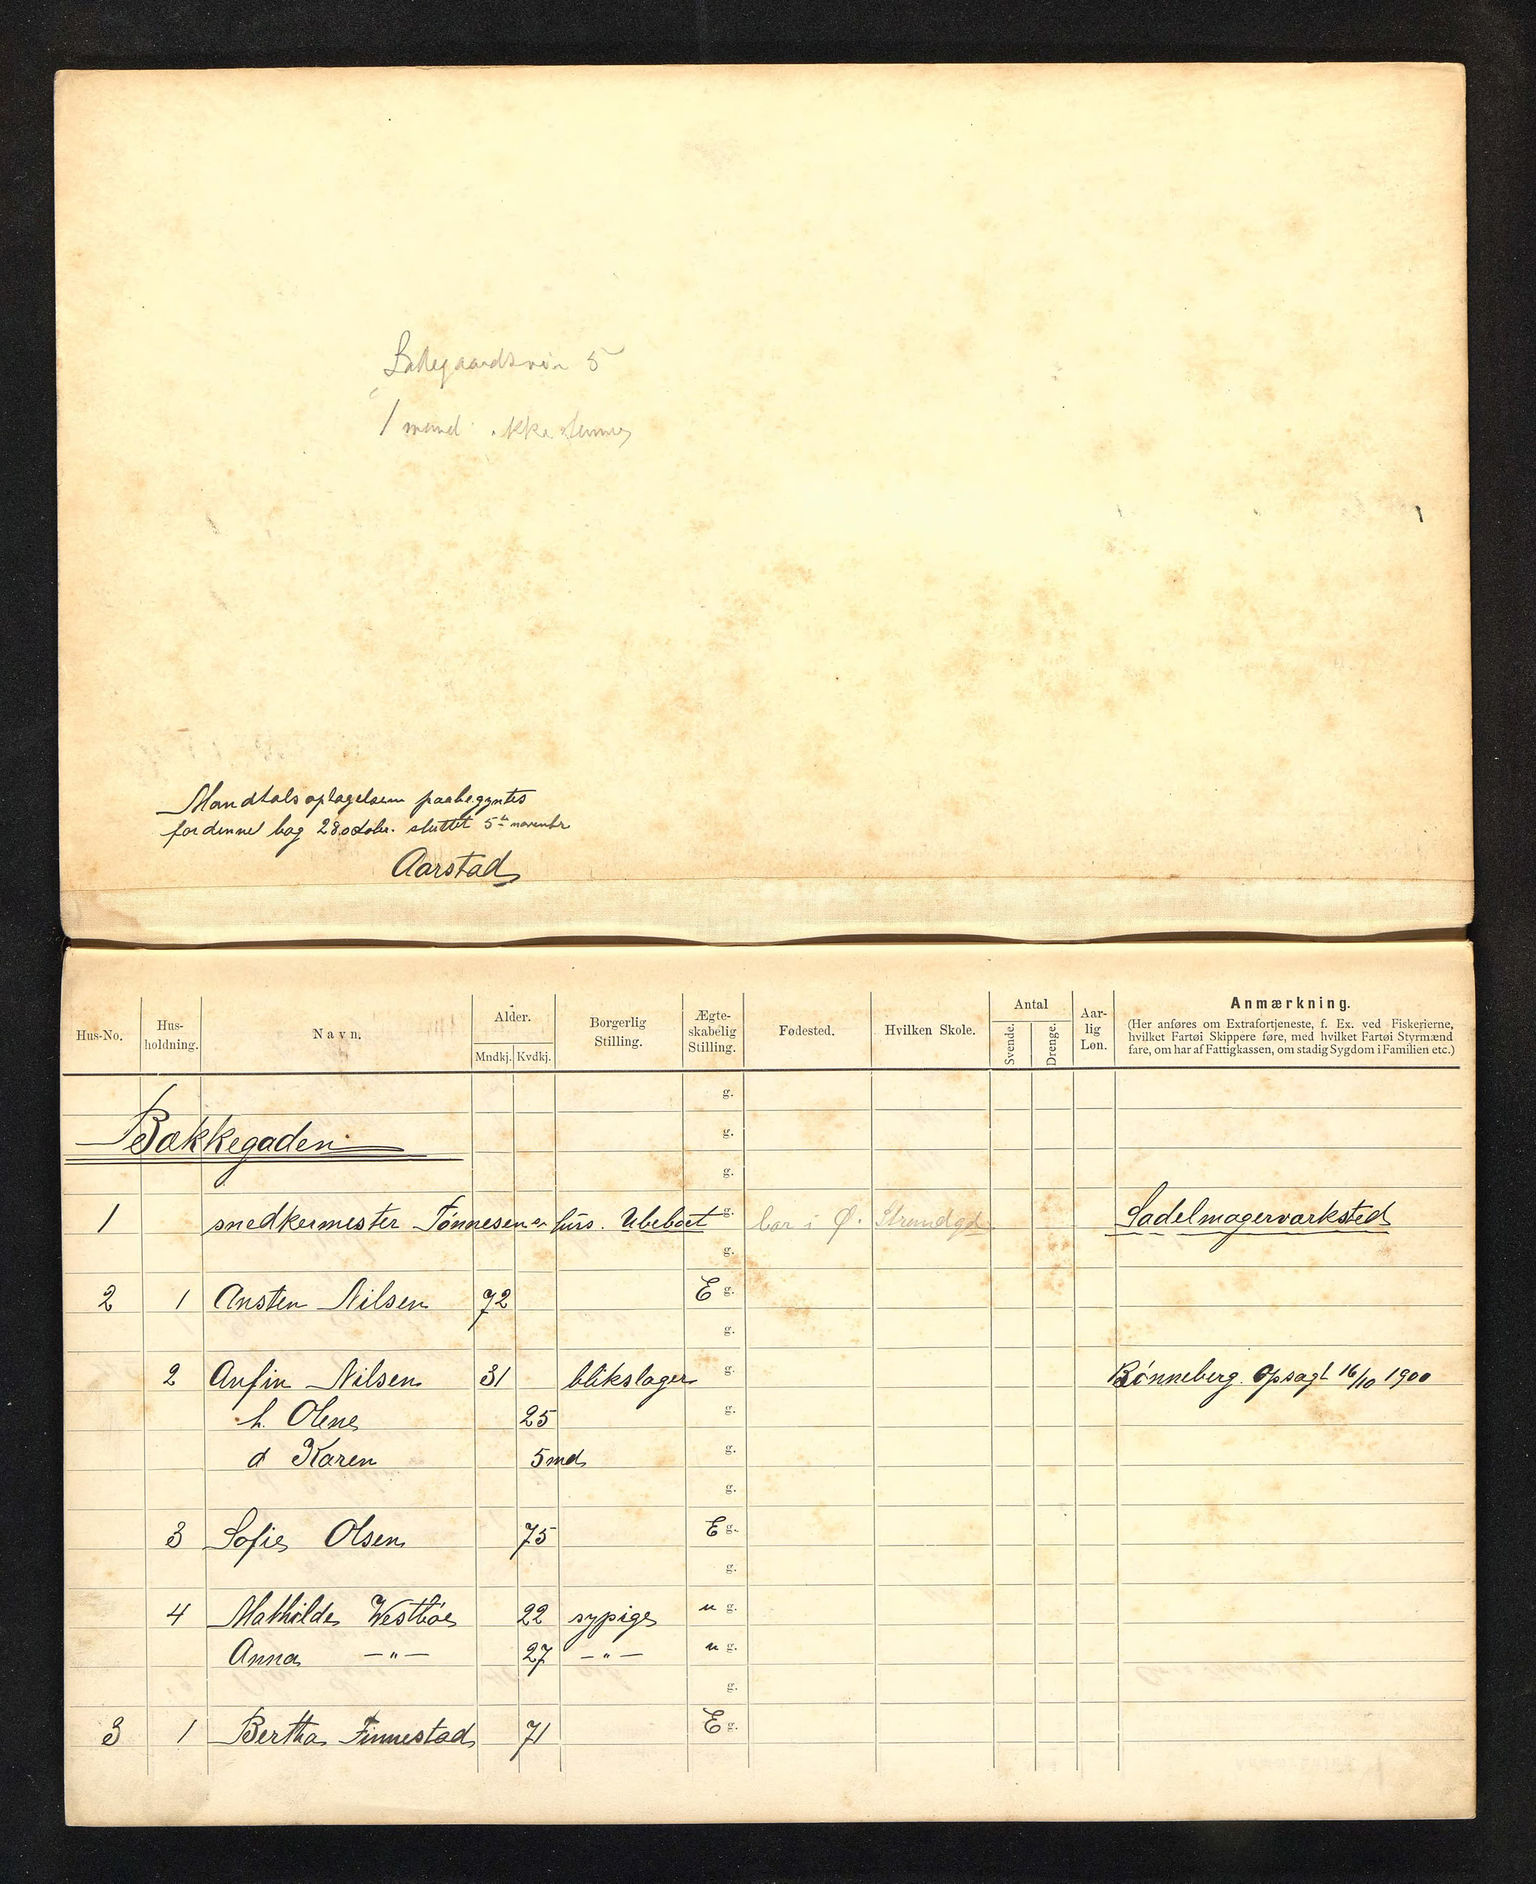 5
1 mand ikke
Mandtalsoptagelsen paabegyntes
for denne bog 28 oktober. sluttet 5te novembr
Aarstad
Hus-No. Hus-holdning. Navn. Alder. Mndkj. Kvdkj. Borgerlig Stilling. Ægte-skabelig Stilling. Fødested. Hvilken Skole. Antal Svende. Drenge. Aar-lig Løn. Anmærkning.
(Her anføres om Extrafortjeneste, f. Ex. ved Fiskerierne,
hvilket Fartøi Skippere føre, med hvilket Fartøi Styrmænd
fare, om har af Fattigkassen, om stadig Sygdom i Familien etc.)
g.
Bækkegaden g.
g.
1 snedkermester Tønnesens hus. Ubeboet g. bor i Ø. Strandgd Sadelmagerværksted
g.
2 1 Ansten Nilsen 72 E g.
g.
2 Anfin Nilsen 31 blikslager g. Rønneberg. Opsagt 16/10 1900
h. Olene 25 g.
d Karen 5 md g.
g.
3 Sofie Olsen 75 E g.
g.
4 Mathilde Westbøe 22 sypige u g.
Anna —"— 27 —"— u g.
g.
3 1 Bertha Finnestad 71 E g.